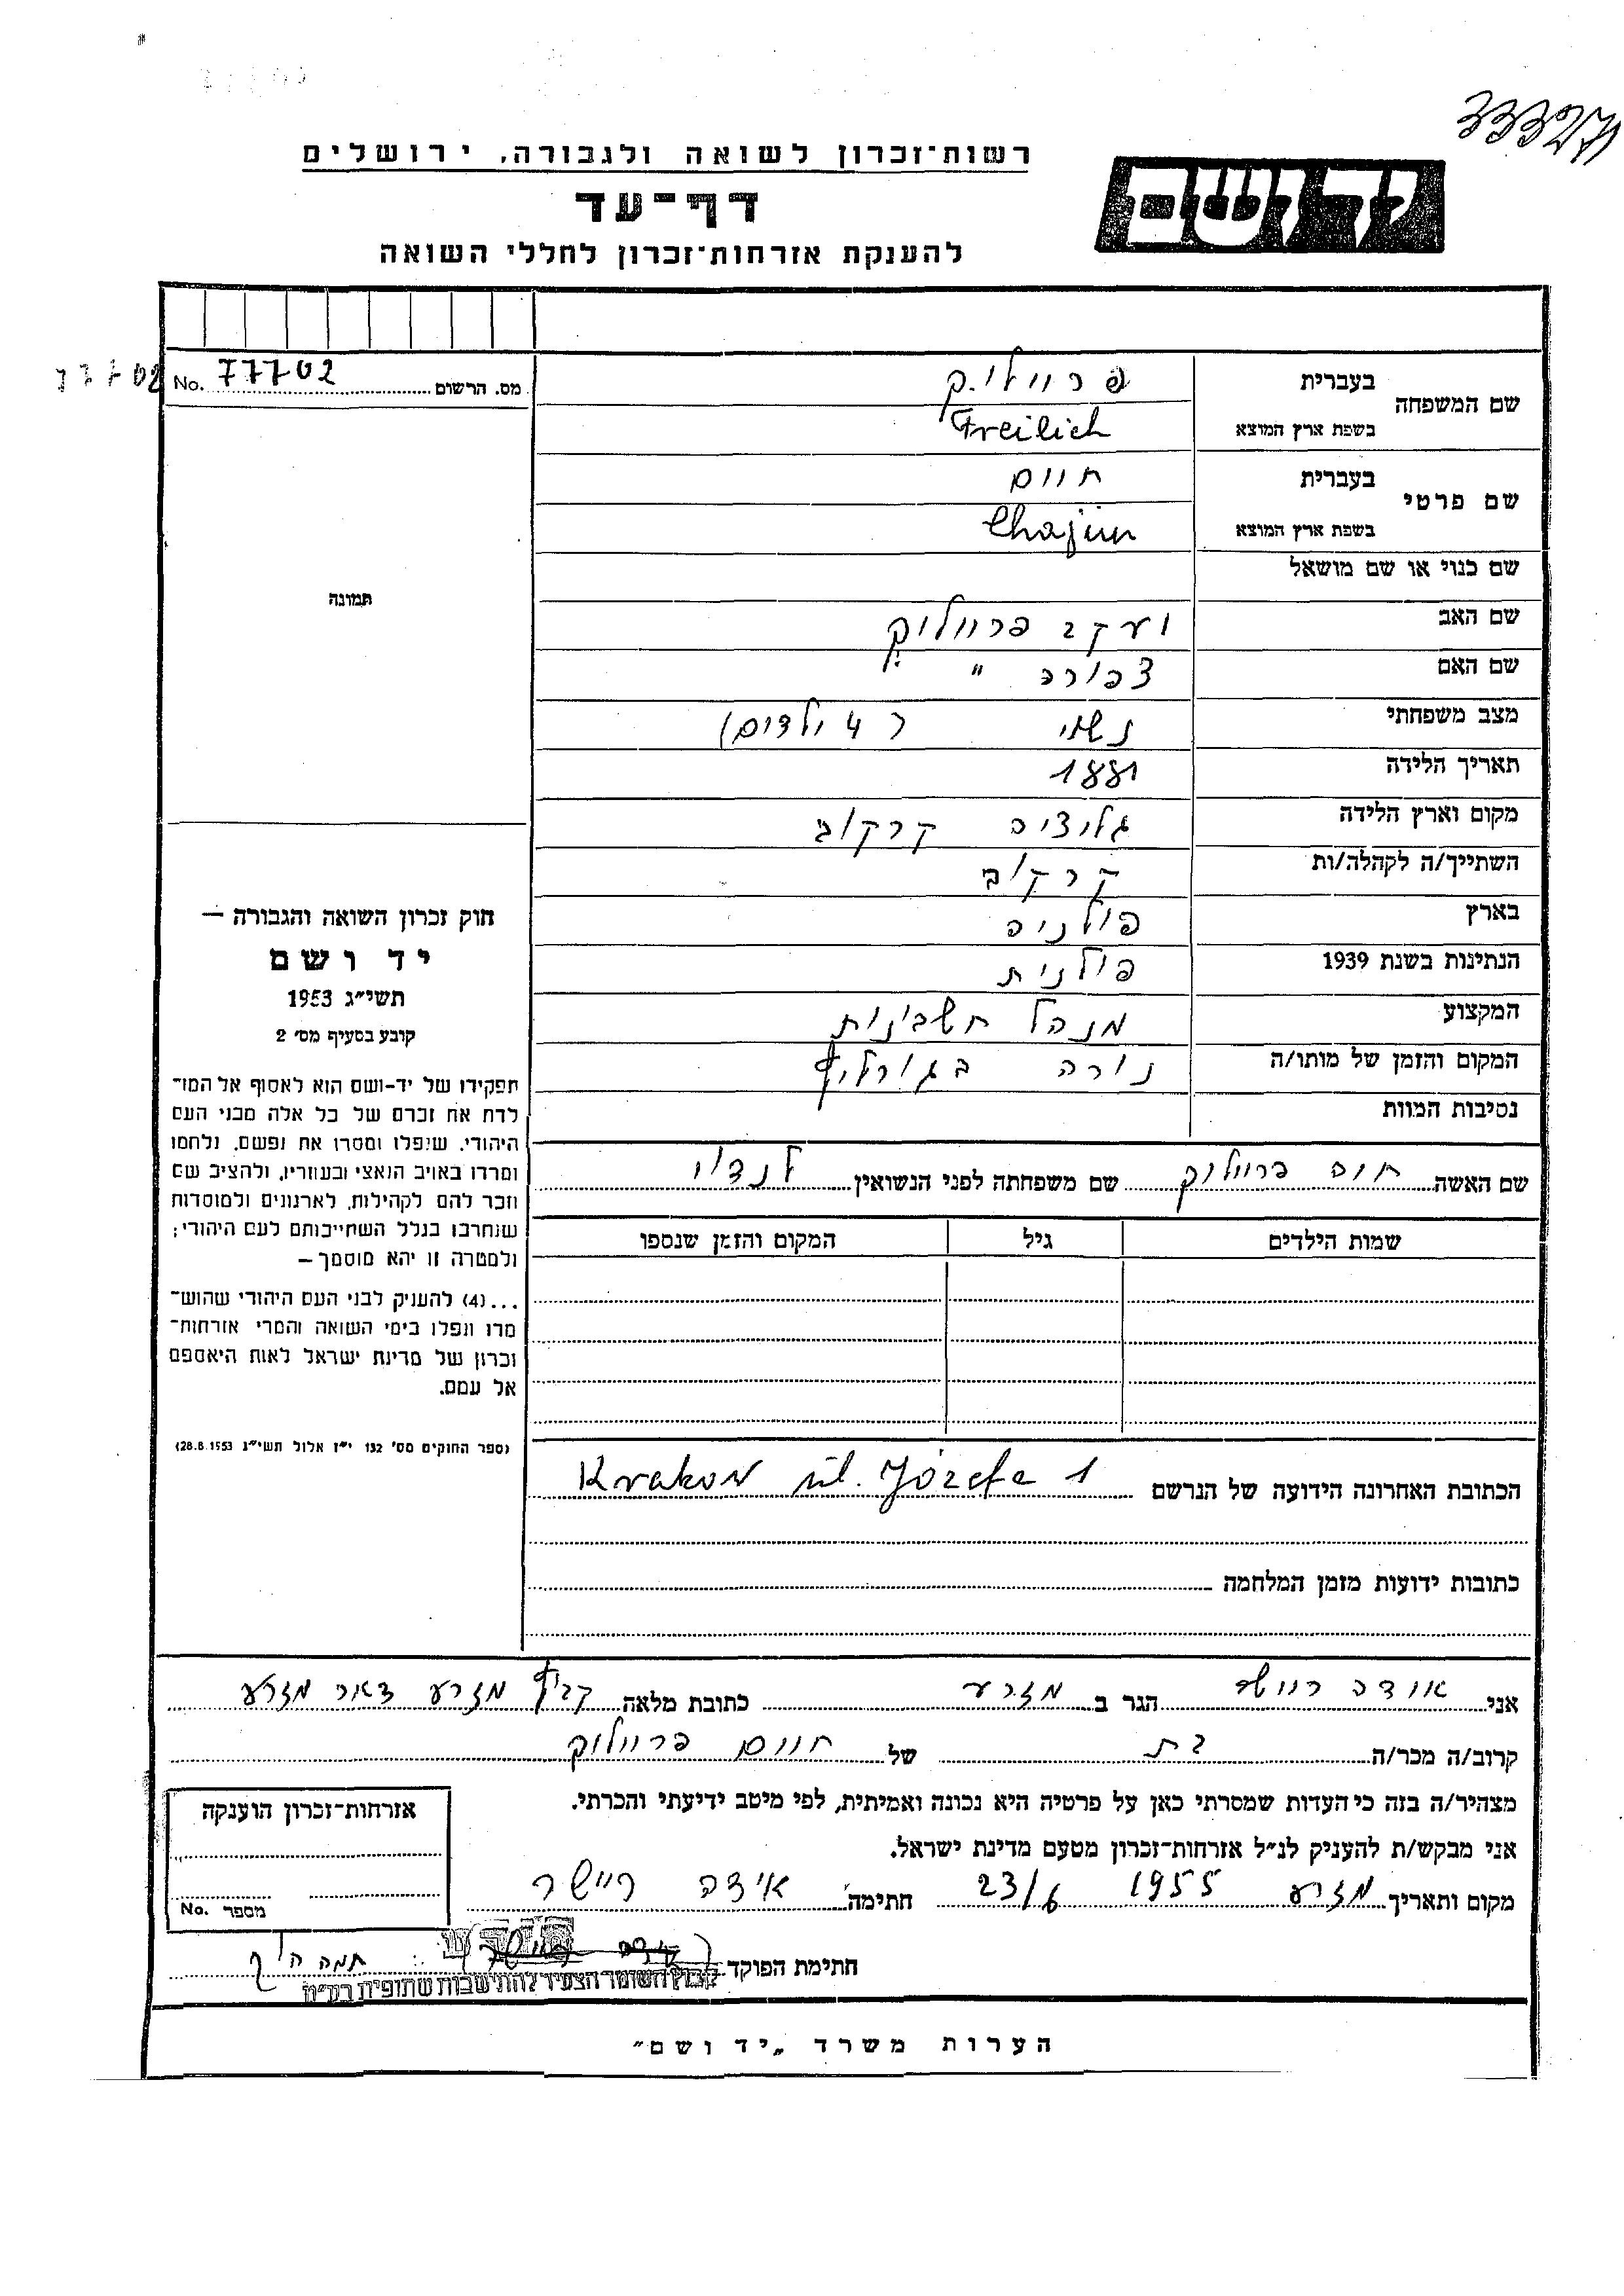 33327
רשות־זכרון לשואה ולגבורה, ירושלים
יד ושם
דף־עד
להענקת אזרחות־זכרון לחללי השואה
77702
מס. הרשום 77702 No.
שם המשפחה
בעברית פריילי.ק
בשפת ארץ המוצא Freilich
שם פרטי
בעברית חיים
בשפת ארץ המוצא Chajim
תמונה
שם כנוי או שם מושאל
שם האב יעקב פריילִיק
שם האם צפורה "
מצב משפחתי נשוי (4 ילדים)
תאריך הלידה 1881
מקום וארץ הלידה גליציה קרקוב
השתייך/ה לקהלה/ות קרקוב
בארץ פולניה
הנתינות בשנת 1939 פולנית
המקצוע מנהל חשבונות
המקום והזמן של מותו/ה נורה בגורליץ
נסיבות המוות
חוק זכרון השואה והגבורה —
יד ושם
תשי״ג 1953
קובע בסעיף מס׳ 2
תפקידו של יד-ושם הוא לאסוף אל המו־
לדת את זכרם של כל אלה מבני העם
היהודי, שיפלו ומסרו את נפשם, נלחמו
ומרדו באויב הנאצי ובעוזריו, ולהציב שם
וזכר להם לקהילות, לארגונים ולמוסדות
שנחרבו בגלל השתייכותם לעם היהודי;
ולמטרה זו יהא מוסמך —
...(4) להעניק לבני העם היהודי שהוש־
מדו ונפלו בימי השואה והמרי אזרחות־
זכרון של מדינת ישראל לאות היאספם
אל עמם.
(ספר החוקים מס׳ 132 י״ז אלול תשי״ג 28.8.1953)
שם האשה חיה פריילוק שם משפחתה לפני הנשואין לנדוי
שמות הילדים גיל המקום והזמן שנספו
הכתובת האחרונה הידועה של הנרשם Krakow ul. Józefa 1
כתובות ידועות מזמן המלחמה
אני אידה ריישר הגר ב מזרע כתובת מלאה קבוץ מזרע דאר מזרע
קרוב/ה מכר/ה בת של חיים פריילוק
מצהיר/ה בזה כי העדות שמסרתי כאן על פרטיה היא נכונה ואמיתית, לפי מיטב ידיעתי והכרתי.
אני מבקש/ת להעניק לנ״ל אזרחות־זכרון מטעם מדינת ישראל.
מקום ותאריך מזרע 1955 23/6 חתימה אידה ריישר
חתימת הפוקד
קבוץ השומר הצעיר להתישבות שתופית בע״מ
אזרחות־זכרון הוענקה
מספר No.
הערות משרד „יד ושם״